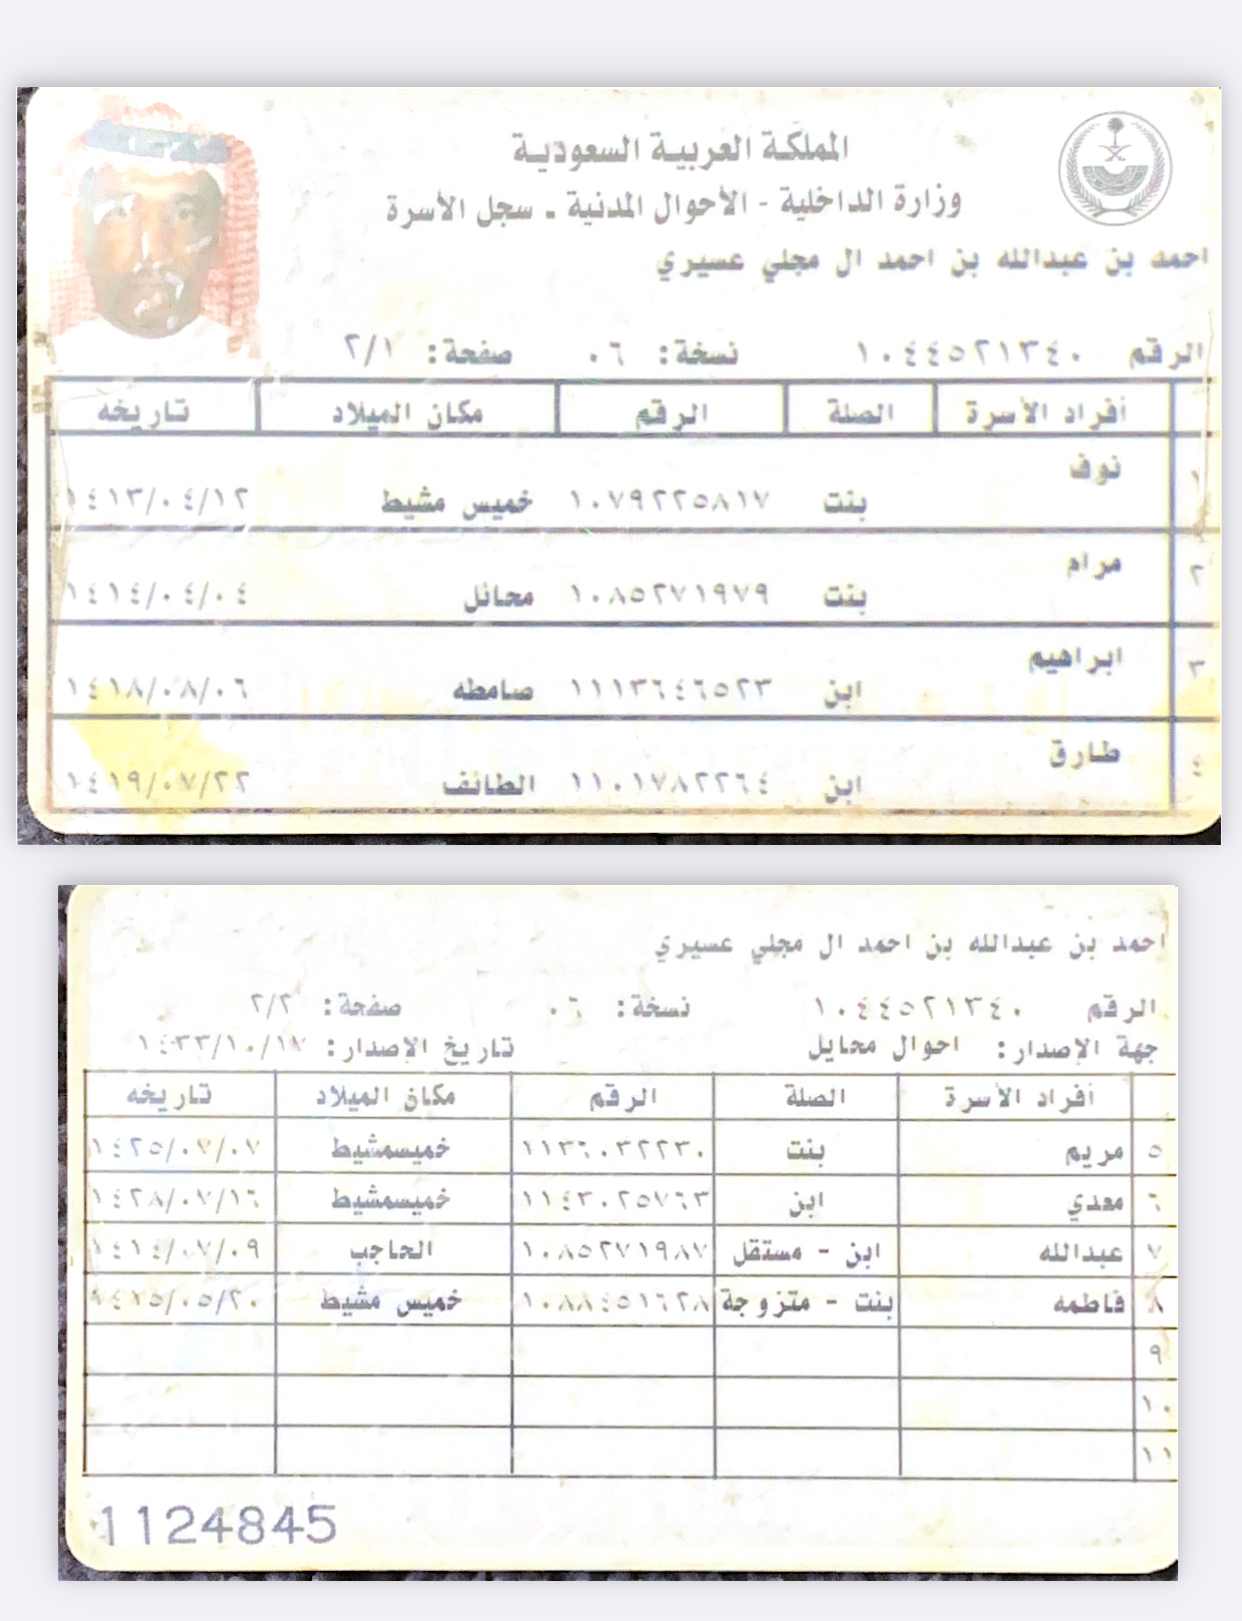 المملكة العربية السعودية
وزارة الداخلية - الأحوال المدنية - سجل الأسرة
احمد بن عبدالله بن احمد ال مجلي عسيري
الرقم ١٠٤٤٥٢١٣٤٠ نسخة: ٠٦ صفحة: ٢/١
أفراد الأسرة الصلة الرقم مكان الميلاد تاريخه
١ نوف بنت ١٠٧٩٢٢٥٨١٧ خميس مشيط ١٤١٣/٠٤/١٢
٢ مرام بنت ١٠٨٥٢٧١٩٧٩ محائل ١٤١٤/٠٤/٠٤
٣ ابراهيم ابن ١١١٣٦٤٦٥٢٣ صامطه ١٤١٨/٠٨/٠٦
٤ طارق ابن ١١٠١٧٨٢٢٦٤ الطائف ١٤١٩/٠٧/٢٢
احمد بن عبدالله بن احمد ال مجلي عسيري
الرقم ١٠٤٤٥٢١٣٤٠ نسخة: ٠٦ صفحة: ٢/٢
جهة الإصدار: احوال محايل تاريخ الإصدار: ١٤٣٣/١٠/١٧
أفراد الأسرة الصلة الرقم مكان الميلاد تاريخه
٥ مريم بنت ١١٣٦٠٣٢٢٣٠ خميسمشيط ١٤٢٥/٠٧/٠٧
٦ معدي ابن ١١٤٣٠٢٥٧٦٣ خميسمشيط ١٤٢٨/٠٧/١٦
٧ عبدالله ابن - مستقل ١٠٨٥٢٧١٩٨٧ الحاجب ١٤١٤/٠٧/٠٩
٨ فاطمه بنت - متزوجة ١٠٨٨٤٥١٦٢٨ خميس مشيط
٩
١٠
١١
1124845